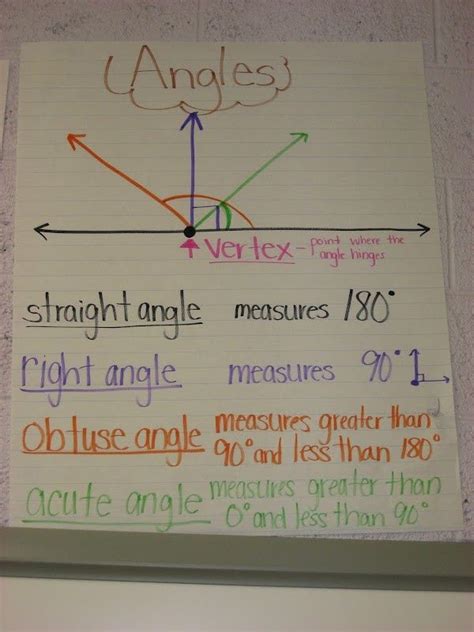 Angles
Vertex - point where the
angle hinges
straight angle measures 180°
right angle measures 90°
Obtuse angle measures greater than
90° and less than 180°
acute angle measures greater than
0° and less than 90°